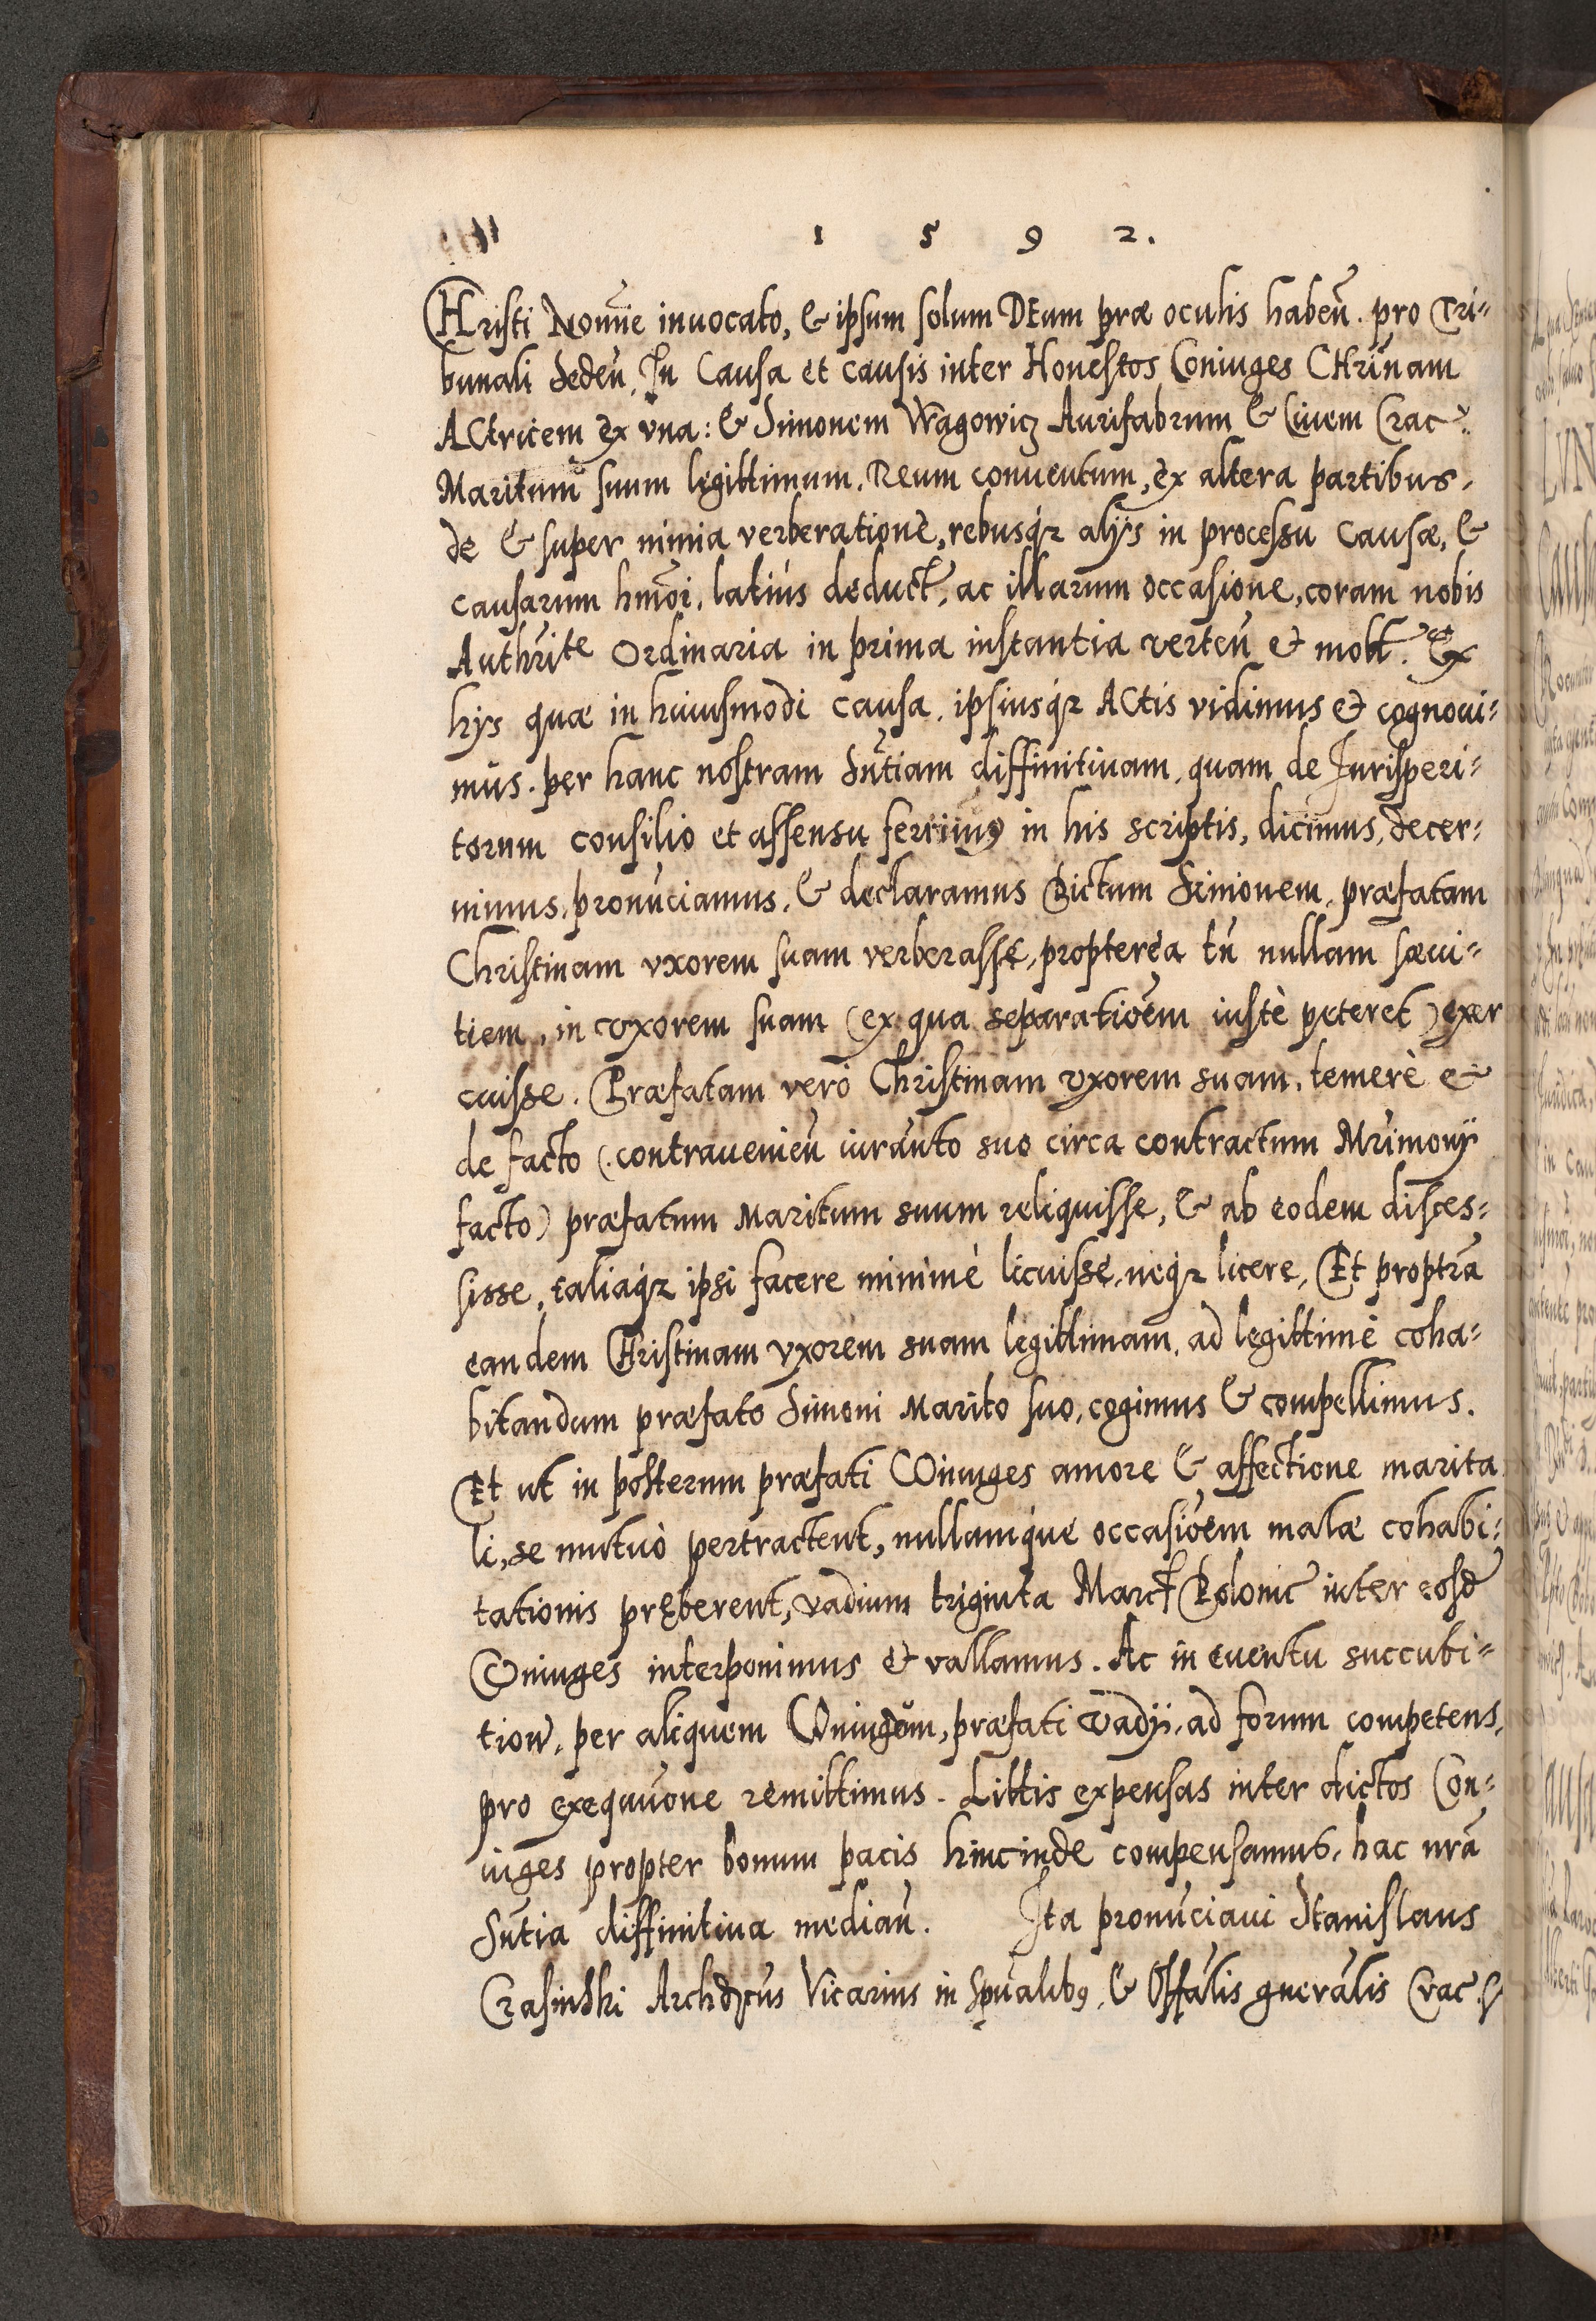 1 5 9 2.
CHristi Nomīe inuocato, & ipsum solum DEum præ oculis habeñ. pro Tri=
bunali sedeñ, In Causa et causis inter Honestos Coniuges CHrinam
ACtricem ex vna: & Simonem Wagowicz Aurifabrum & Ciuem Crac.
Maritum suum legittimum. Reum conuentum, ex altera partibus,
de & super nimia verberatione, rebusqꝫ alijs in processu causæ, &
causarum hmōi. latius deduct̃, ac illarum occasione, coram nobis
Authrite Ordinaria in prima instantia verteñ & mot̃. Ex
hijs quæ in huiusmodi causa, ipsiusqꝫ ACtis vidimus & cognoui=
mus. per hanc nostram Sñtiam diffinitiuam, quam de Jurisperi=
torum consilio et assensu ferrimꝰ in his scriptis, dicimus, decer=
nimus, pronūciamus, & declaramus Dictum Simonem, præfatam
Christinam vxorem suam verberasse, propterea tñ nullam sæui=
tiem, in vxorem suam (ex qua separatioēm iustè peteret) exer
cuisse. Præfatam verò Christinam vxorem suam, temerè &
de facto (contraueniеñ iurañto suo circa contractum Mr̄imonij
facto) præfatum Maritum suum reliquisse, & ab eodem disces=
sisse, taliaqꝫ ipsi facere minimè licuisse, neqꝫ licere, Et proptr̄a
eandem CHristinam vxorem suam legittimam, ad legittimè coha=
bitandum præfato Simoni Marito suo, cogimus & compellimus.
Et ut in posterum præfati COniuges amore & affectione marita
li, se mutuò pertractent, nullamque occasioēm malæ cohabi=
tationis pręberent, vadium triginta Marc̃ Polonic̃ inter eosd̃
COniuges interponimus & vallamus. Ac in euentu succubi=
tioñ, per aliquem COniugūm, præfati vadij, ad forum competens,
pro exequūone remittimus. Littis expensas inter dictos Con=
iuges propter bonum pacis hincinde compensamus, hac nr̄a
Sñtia diffinitiua mediañ. Ita pronūciaui Stanislaus
Crasinski Archdꝛcus Vicarius in Spūalibꝰ, & Offālis gnerālis Crac.